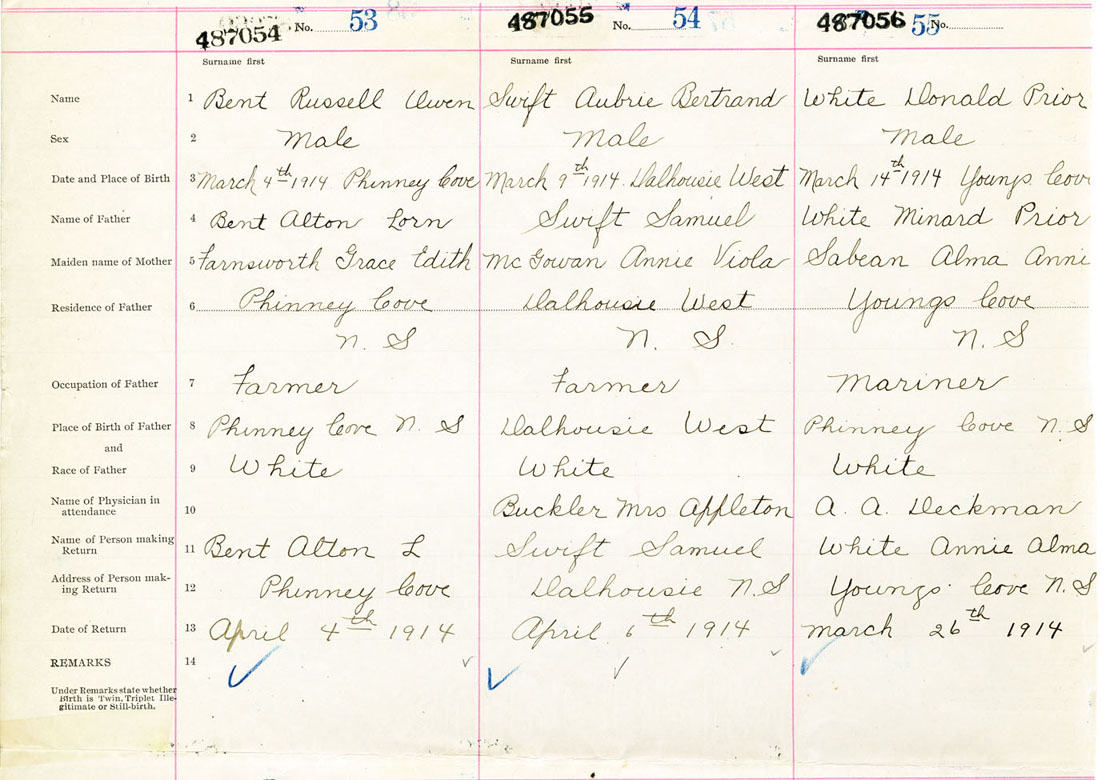 487054 No. 53 487055 No. 54 487056 55 No.
Surname first Surname first Surname first
Name 1 Bent Russell Owen Swift Aubrie Bertrand White Donald Prior
Sex 2 Male Male Male
Date and Place of Birth 3 March 4th 1914 Phinney Cove March 9th 1914. Dalhousie West March 14th 1914 Youngs Cove
Name of Father 4 Bent Alton Lorn Swift Samuel White Minard Prior
Maiden name of Mother 5 Farnsworth Grace Edith McGowan Annie Viola Sabean Alma Anni
Residence of Father 6 Phinney Cove Dalhousie West Youngs Cove
N. S N. S. N. S
Occupation of Father 7 Farmer Farmer Mariner
Place of Birth of Father 8 Phinney Cove N. S Dalhousie West Phinney Cove N. S
and
Race of Father 9 White White White
Name of Physician in
attendance 10 Buckler Mrs Appleton A. A. Deckman
Name of Person making
Return 11 Bent Alton L Swift Samuel White Annie Alma
Address of Person mak-
ing Return 12 Phinney Cove Dalhousie N. S Youngs Cove N. S
Date of Return 13 April 4th 1914 April 6th 1914 March 26th 1914
REMARKS 14
Under Remarks state whether
Birth is Twin, Triplet Ille-
gitimate or Still-birth.